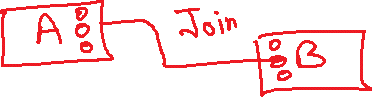 A
Join
B